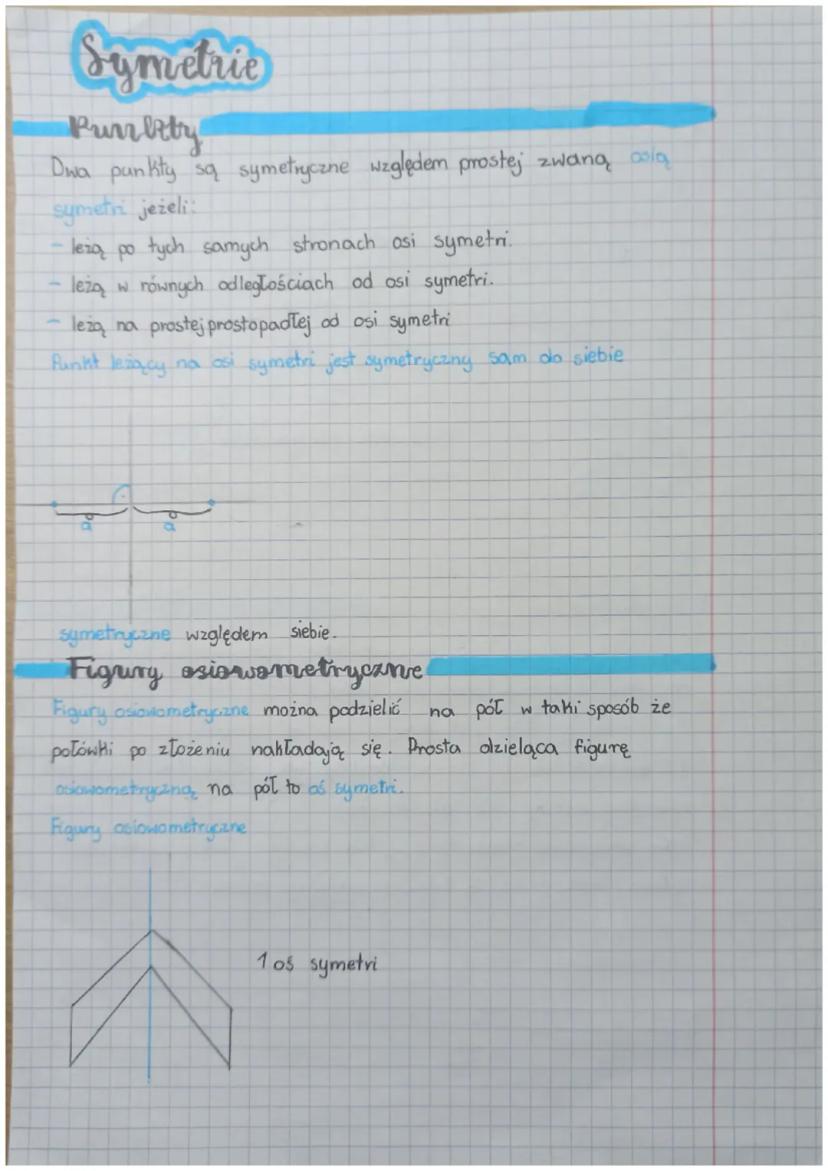 Symetrie
Punkty
Dwa punkty są symetryczne względem prostej zwaną osią
symetri jeżeli:
- leżą po tych samych stronach osi symetri.
- leżą w równych odległościach od osi symetri.
- leżą na prostej prostopadłej od osi symetri
Punkt leżący na osi symetri jest symetryczny sam do siebie
a a
symetryczne względem siebie.
Figury osiowometryczne
Figury osiowometryczne można podzielić na pół w taki sposób że
połówki po złożeniu nakładają się. Prosta dzieląca figurę
osiowometryczną na pół to oś symetri.
Figury osiowometryczne
1 oś symetri